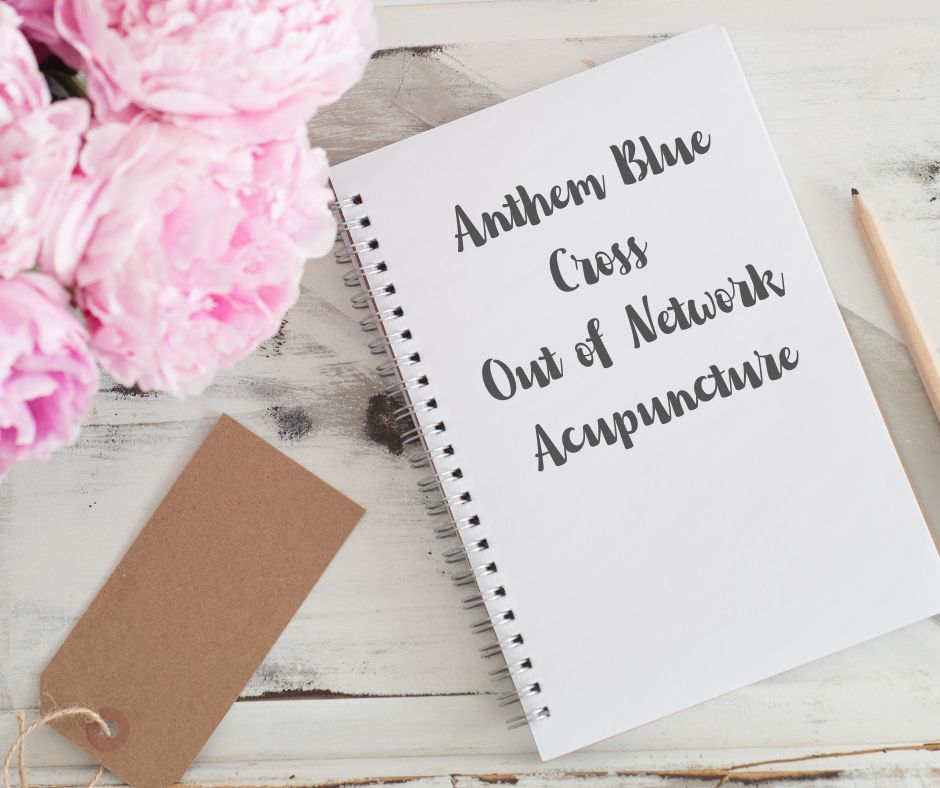 Anthem Blue
Cross
Out of Network
Acupuncture